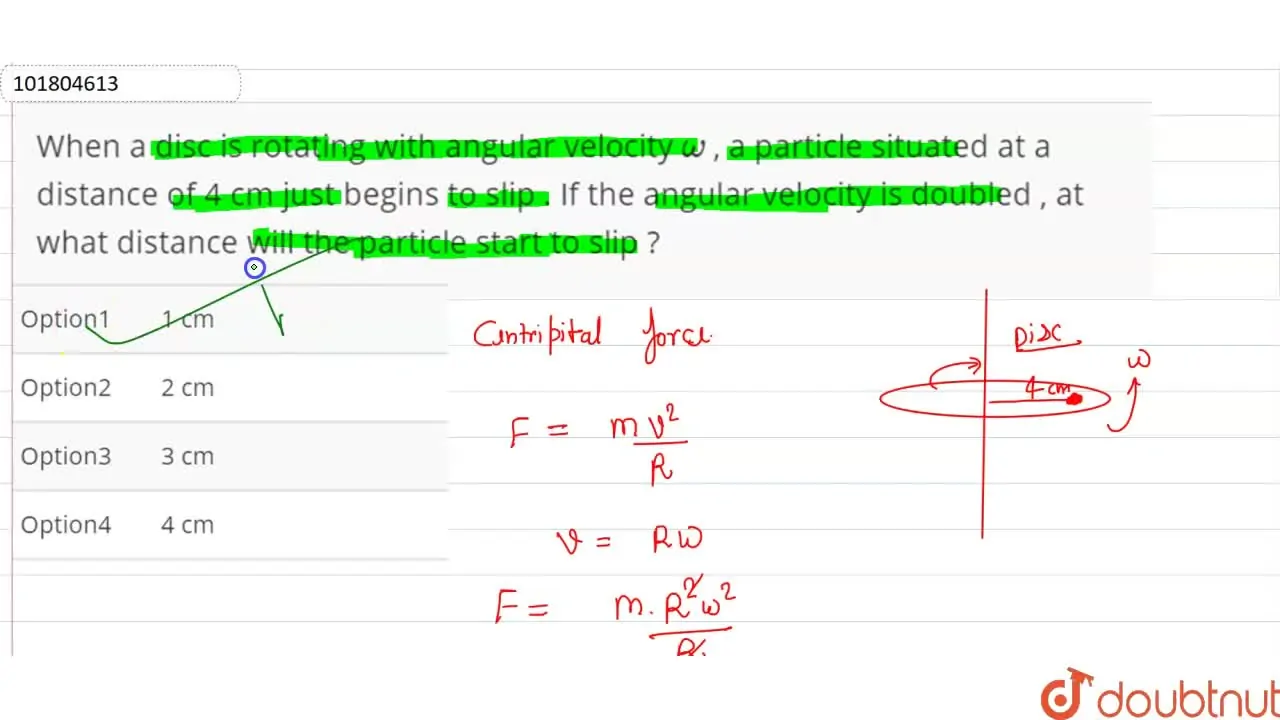 101804613
When a disc is rotating with angular velocity ω , a particle situated at a
distance of 4 cm just begins to slip . If the angular velocity is doubled , at
what distance will the particle start to slip ?
Option1 1 cm
Option2 2 cm
Option3 3 cm
Option4 4 cm
Centripital force
F = mv²/R
v = Rω
F = m.R²ω²/R
Disc
ω
4 cm
doubtnut